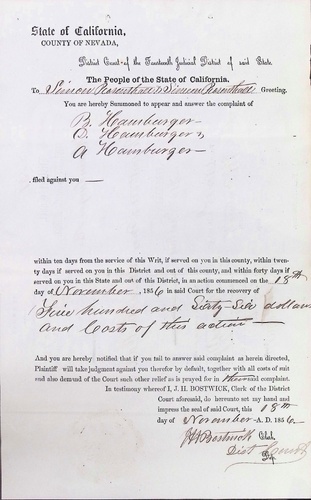 State of California,
COUNTY OF NEVADA,
District Court of the Fourteenth Judicial District of said State.
The People of the State of California.
To Simon Rosenthal & Simon Rosenthall Greeting.
You are hereby Summoned to appear and answer the complaint of
B. Hamburger
D. Hamburger &
A Hamburger
filed against you
within ten days from the service of this Writ, if served on you in this county, within twen-
ty days if served on you in this District and out of this county, and within forty days if
served on you in this State and out of this District, in an action commenced on the 18th
day of November, 1856 in said Court for the recovery of
Five hundred and Sixty-Six dollars
and Costs of this action
And you are hereby notified that if you fail to answer said complaint as herein directed,
Plaintiff will take judgment against you therefor by default, together with all costs of suit
and also demand of the Court such other relief as is prayed for in their said complaint.
In testimony whereof I, J. H. BOSTWICK, Clerk of the District
Court aforesaid, do hereunto set my hand and
impress the seal of said Court, this 18th
day of November A. D. 1856
J H Bostwick Clerk
Dist Court